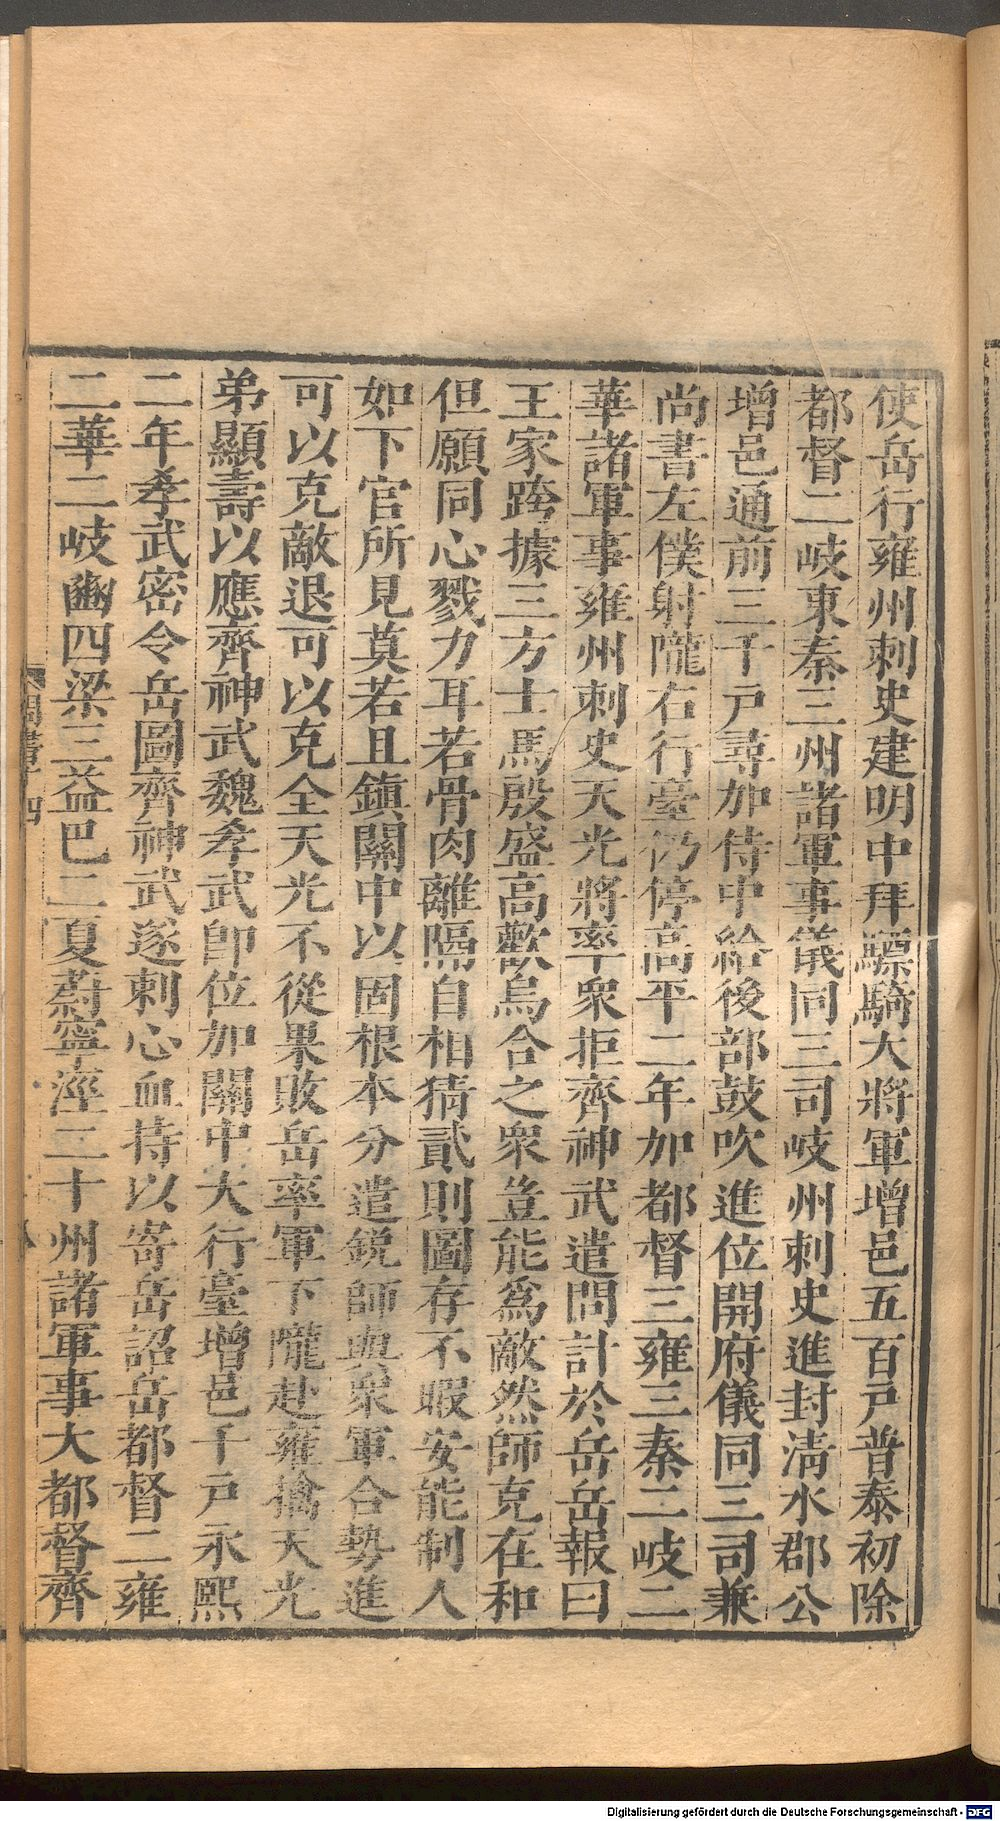 使岳行雍州刺史建明中拜驃騎大將軍增邑五百戸普泰初除
都督二岐東秦三州諸軍事儀同三司岐州刺史進封淸水郡公
增邑通前三千戸尋加侍中給後部鼓吹進位開府儀同三司兼
尚書左僕射隴右行臺仍停高平二年加都督三雍三秦二岐二
華諸軍事雍州刺史天光將率衆拒齊神武遣問計於岳岳報曰
王家跨據三方士馬殷盛高歡烏合之衆豈能爲敵然師克在和
但願同心戮力耳若骨肉離隔自相猜貳則圖存不暇安能制人
如下官所見莫若且鎮關中以固根本分遣銳師與衆軍合勢進
可以克敵退可以克全天光不從果敗岳率軍下隴赴雍擒天光
弟顯壽以應齊神武魏孝武卽位加關中大行臺增邑千戸永熙
二年孝武密令岳圖齊神武遂刺心血持以寄岳詔岳都督二雍
二華二岐豳四梁三益巴二夏蔚寧涇二十州諸軍事大都督齊
周書十四
八
Digitalisierung gefördert durch die Deutsche Forschungsgemeinschaft - DFG